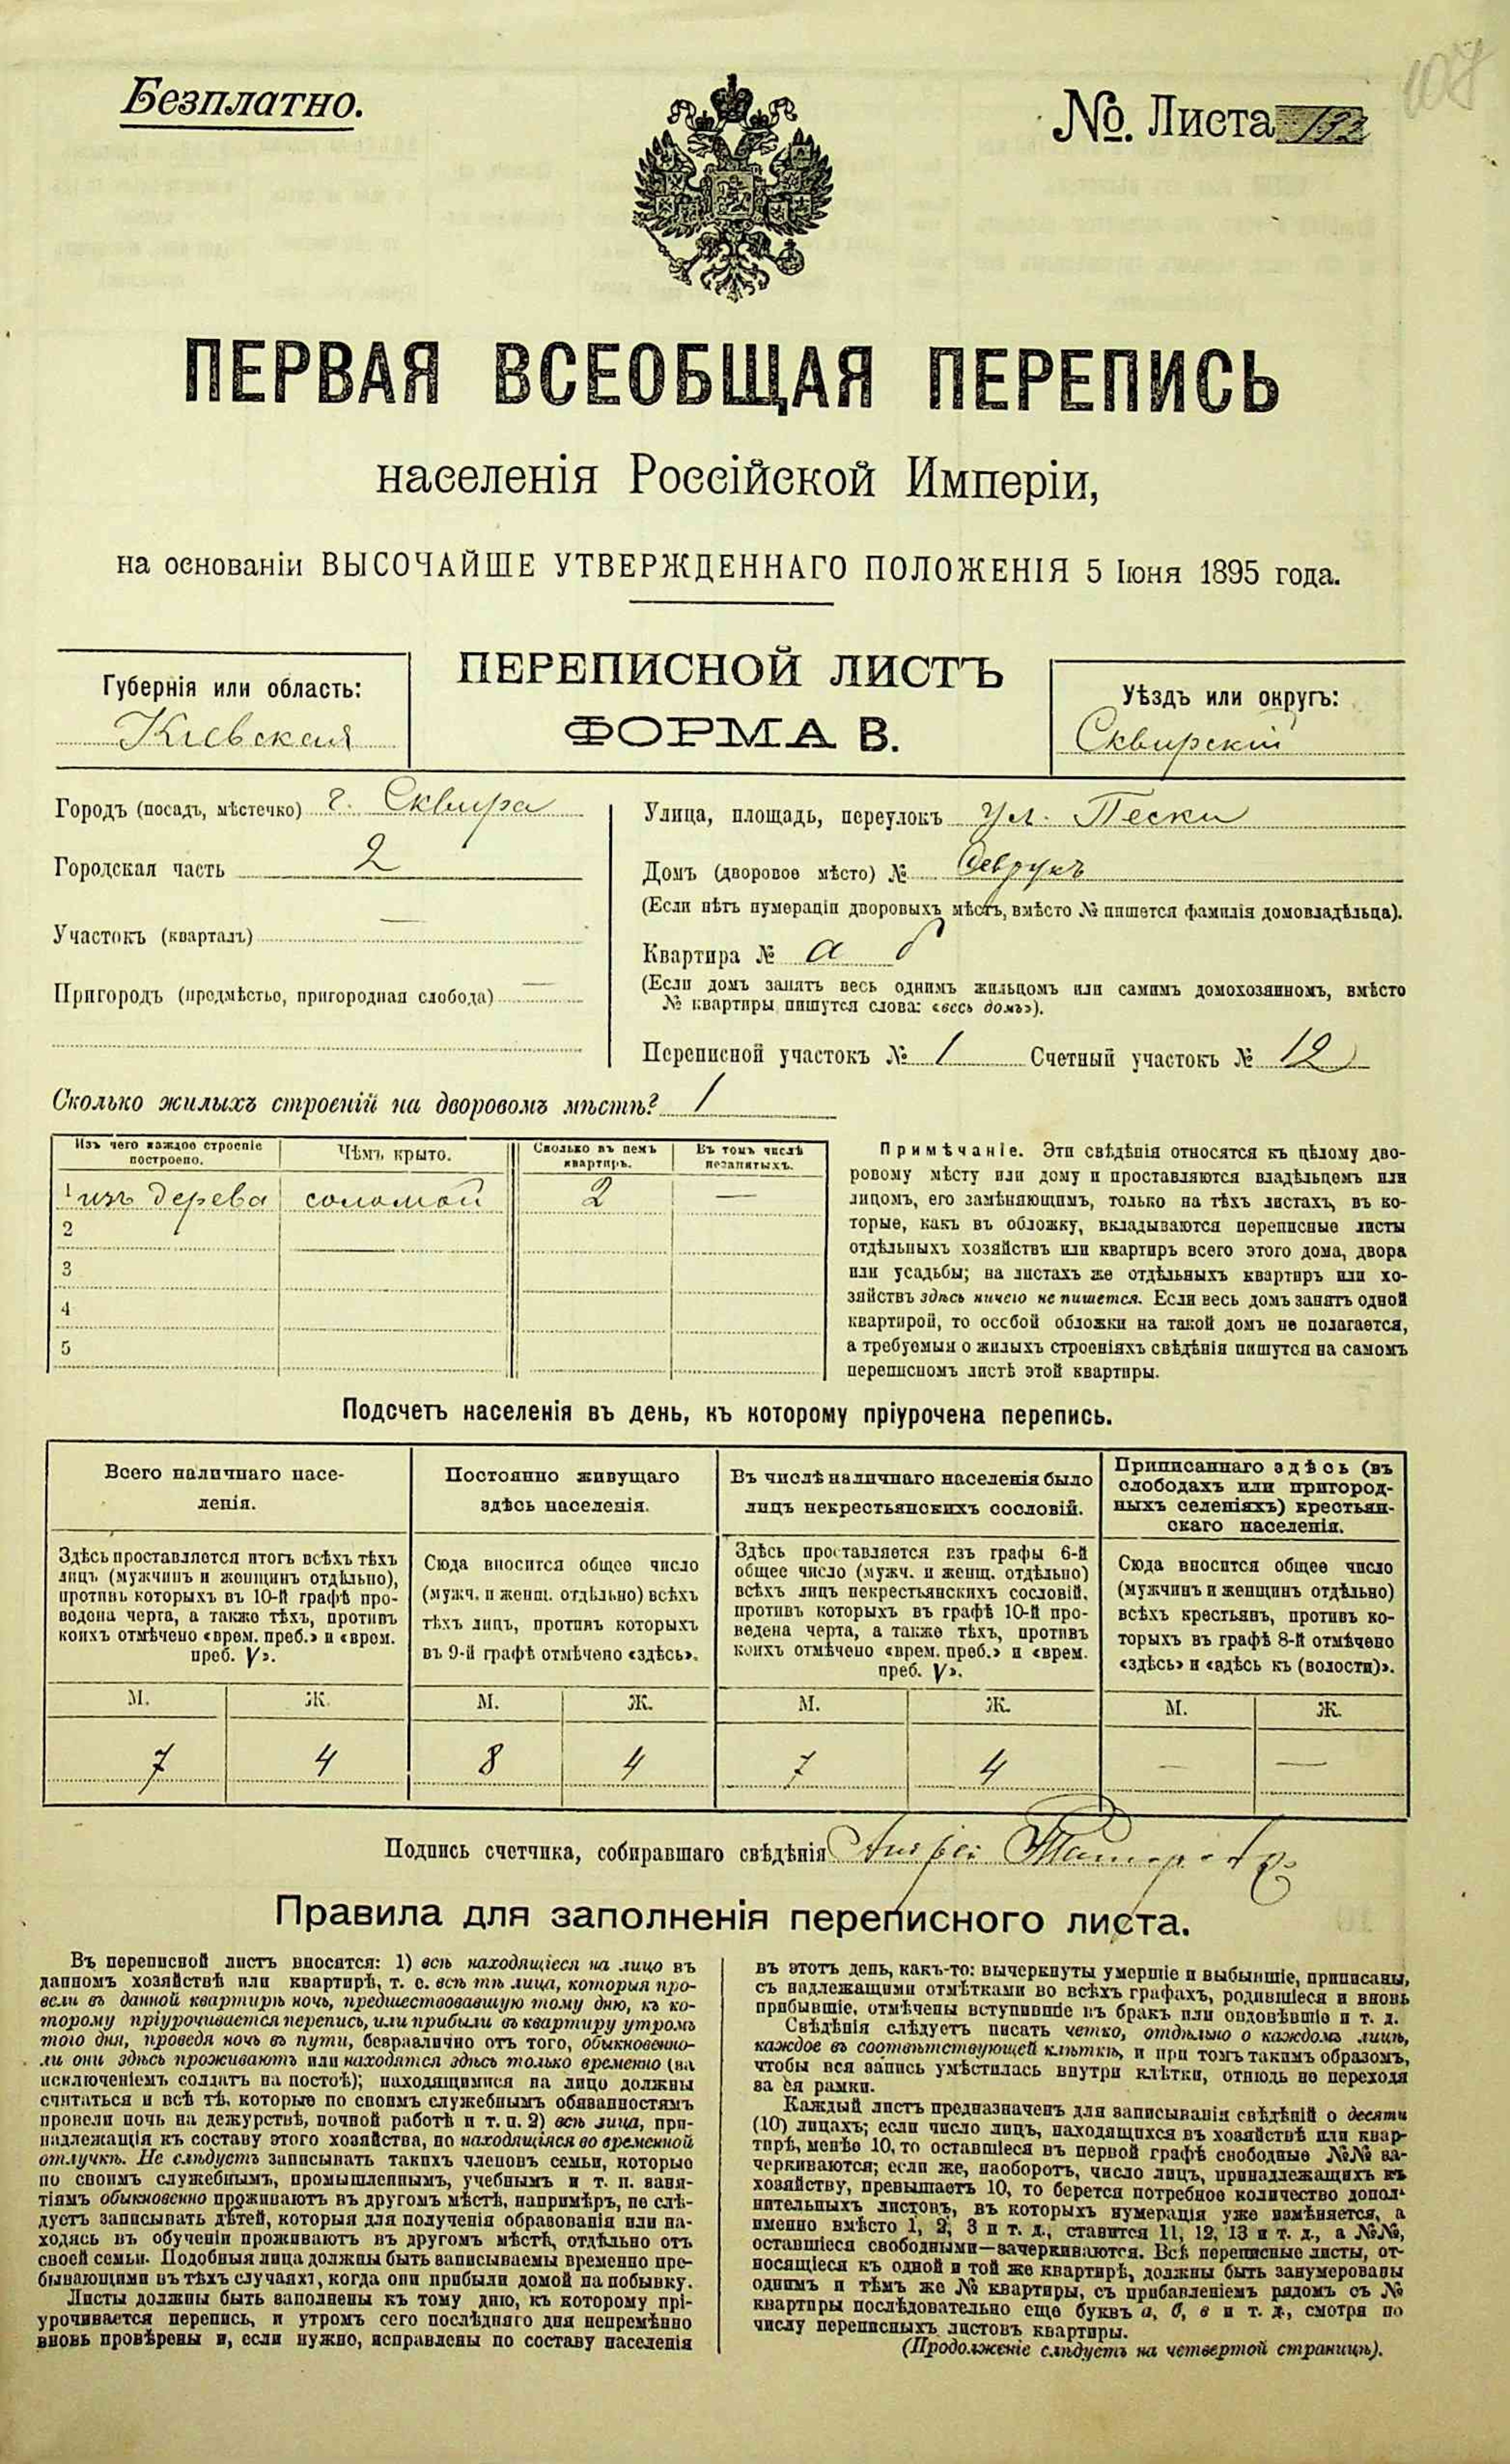 107
Безплатно.
№. Листа 192
ПЕРВАЯ ВСЕОБЩАЯ ПЕРЕПИСЬ
населенія Россійской Имперіи,
на основаніи ВЫСОЧАЙШЕ УТВЕРЖДЕННАГО ПОЛОЖЕНІЯ 5 Іюня 1895 года.
Губернія или область:
Кіевская
ПЕРЕПИСНОЙ ЛИСТЪ
ФОРМА В.
Уѣздъ или округъ:
Сквирскій
Городъ (посадъ, мѣстечко) г. Сквира
Городская часть 2
Участокъ (кварталъ) —
Пригородъ (предмѣстье, пригородная слобода) —
Улица, площадь, переулокъ ул. Пески
Домъ (дворовое мѣсто) №
(Если нѣтъ нумераціи дворовыхъ мѣстъ, вмѣсто № пишется фамилія домовладѣльца).
Квартира № а б
(Если домъ занятъ весь однимъ жильцомъ или самимъ домохозяиномъ, вмѣсто
№ квартиры пишутся слова: «весь домъ»).
Переписной участокъ № 1 Счетный участокъ № 12
Сколько жилыхъ строеній на дворовомъ мѣстѣ? 1
Изъ чего каждое строеніе
построено.
Чѣмъ крыто.
Сколько въ немъ
квартиръ.
Въ томъ числѣ
незанятыхъ.
1 изъ дерева соломой 2 —
2
3
4
5
Примѣчаніе. Эти свѣдѣнія относятся къ цѣлому дво-
ровому мѣсту или дому и проставляются владѣльцемъ или
лицомъ, его замѣняющимъ, только на тѣхъ листахъ, въ ко-
торые, какъ въ обложку, вкладываются переписные листы
отдѣльныхъ хозяйствъ или квартиръ всего этого дома, двора
или усадьбы; на листахъ же отдѣльныхъ квартиръ или хо-
зяйствъ здѣсь ничего не пишется. Если весь домъ занятъ одной
квартирой, то особой обложки на такой домъ не полагается,
а требуемыя о жилыхъ строеніяхъ свѣдѣнія пишутся на самомъ
переписномъ листѣ этой квартиры.
Подсчетъ населенія въ день, къ которому пріурочена перепись.
Всего наличнаго насе-
ленія.
Здѣсь проставляется итогъ всѣхъ тѣхъ
лицъ (мужчинъ и женщинъ отдѣльно),
противъ которыхъ въ 10-й графѣ про-
ведена черта, а также тѣхъ, противъ
коихъ отмѣчено «врем. преб.» и «врем.
преб. V».
М. Ж.
7 4
Постоянно живущаго
здѣсь населенія.
Сюда вносится общее число
(мужч. и женщ. отдѣльно) всѣхъ
тѣхъ лицъ, противъ которыхъ
въ 9-й графѣ отмѣчено «здѣсь».
М. Ж.
8 4
Въ числѣ наличнаго населенія было
лицъ некрестьянскихъ сословій.
Здѣсь проставляется изъ графы 6-й
общее число (мужч. и женщ. отдѣльно)
всѣхъ лицъ некрестьянскихъ сословій,
противъ которыхъ въ графѣ 10-й про-
ведена черта, а также тѣхъ, противъ
коихъ отмѣчено «врем. преб.» и «врем.
преб. V».
М. Ж.
7 4
Приписаннаго здѣсь (въ
слободахъ или пригород-
ныхъ селеніяхъ) крестьян-
скаго населенія.
Сюда вносится общее число
(мужчинъ и женщинъ отдѣльно)
всѣхъ крестьянъ, противъ ко-
торыхъ въ графѣ 8-й отмѣчено
«здѣсь» и «здѣсь къ (волости)».
М. Ж.
— —
Подпись счетчика, собиравшаго свѣдѣнія Андрей
Правила для заполненія переписного листа.
Въ переписной листъ вносятся: 1) всѣ находящіеся на лицо въ
данномъ хозяйствѣ или квартирѣ, т. е. всѣ тѣ лица, которыя про-
вели въ данной квартирѣ ночь, предшествовавшую тому дню, къ ко-
торому пріурочивается перепись, или прибыли въ квартиру утромъ
того дня, проведя ночь въ пути, безразлично отъ того, обыкновенно-
ли они здѣсь проживаютъ или находятся здѣсь только временно (за
исключеніемъ солдатъ на постоѣ); находящимися на лицо должны
считаться и всѣ тѣ, которые по своимъ служебнымъ обязанностямъ
провели ночь на дежурствѣ, ночной работѣ и т. п. 2) всѣ лица, при-
надлежащія къ составу этого хозяйства, но находящіяся во временной
отлучкѣ. Не слѣдуетъ записывать такихъ членовъ семьи, которые
по своимъ служебнымъ, промышленнымъ, учебнымъ и т. п. заня-
тіямъ обыкновенно проживаютъ въ другомъ мѣстѣ, напримѣръ, не слѣ-
дуетъ записывать дѣтей, которыя для полученія образованія или на-
ходясь въ обученіи проживаютъ въ другомъ мѣстѣ, отдѣльно отъ
своей семьи. Подобныя лица должны быть записываемы временно пре-
бывающими въ тѣхъ случаяхъ, когда они прибыли домой на побывку.
Листы должны быть заполнены къ тому дню, къ которому прі-
урочивается перепись, и утромъ сего послѣдняго дня непремѣнно
вновь провѣрены и, если нужно, исправлены по составу населенія
въ этотъ день, какъ-то: вычеркнуты умершіе и выбывшіе, приписаны,
съ надлежащими отмѣтками во всѣхъ графахъ, родившіеся и вновь
прибывшіе, отмѣчены вступившіе въ бракъ или овдовѣвшіе и т. д.
Свѣдѣнія слѣдуетъ писать четко, отдѣльно о каждомъ лицѣ,
каждое въ соотвѣтствующей клѣткѣ, и при томъ такимъ образомъ,
чтобы вся запись умѣстилась внутри клѣтки, отнюдь не переходя
за ея рамки.
Каждый листъ предназначенъ для записыванія свѣдѣній о десяти
(10) лицахъ; если число лицъ, находящихся въ хозяйствѣ или квар-
тирѣ, менѣе 10, то оставшіеся въ первой графѣ свободные №№ за-
черкиваются; если же, наоборотъ, число лицъ, принадлежащихъ къ
хозяйству, превышаетъ 10, то берется потребное количество допол-
нительныхъ листовъ, въ которыхъ нумерація уже измѣняется, а
именно вмѣсто 1, 2, 3 и т. д., ставится 11, 12, 13 и т. д., а №№,
оставшіеся свободными—зачеркиваются. Всѣ переписные листы, от-
носящіеся къ одной и той же квартирѣ, должны быть занумерованы
однимъ и тѣмъ же № квартиры, съ прибавленіемъ рядомъ съ №
квартиры послѣдовательно еще буквъ а, б, в и т. д., смотря по
числу переписныхъ листовъ квартиры.
(Продолженіе слѣдуетъ на четвертой страницѣ).